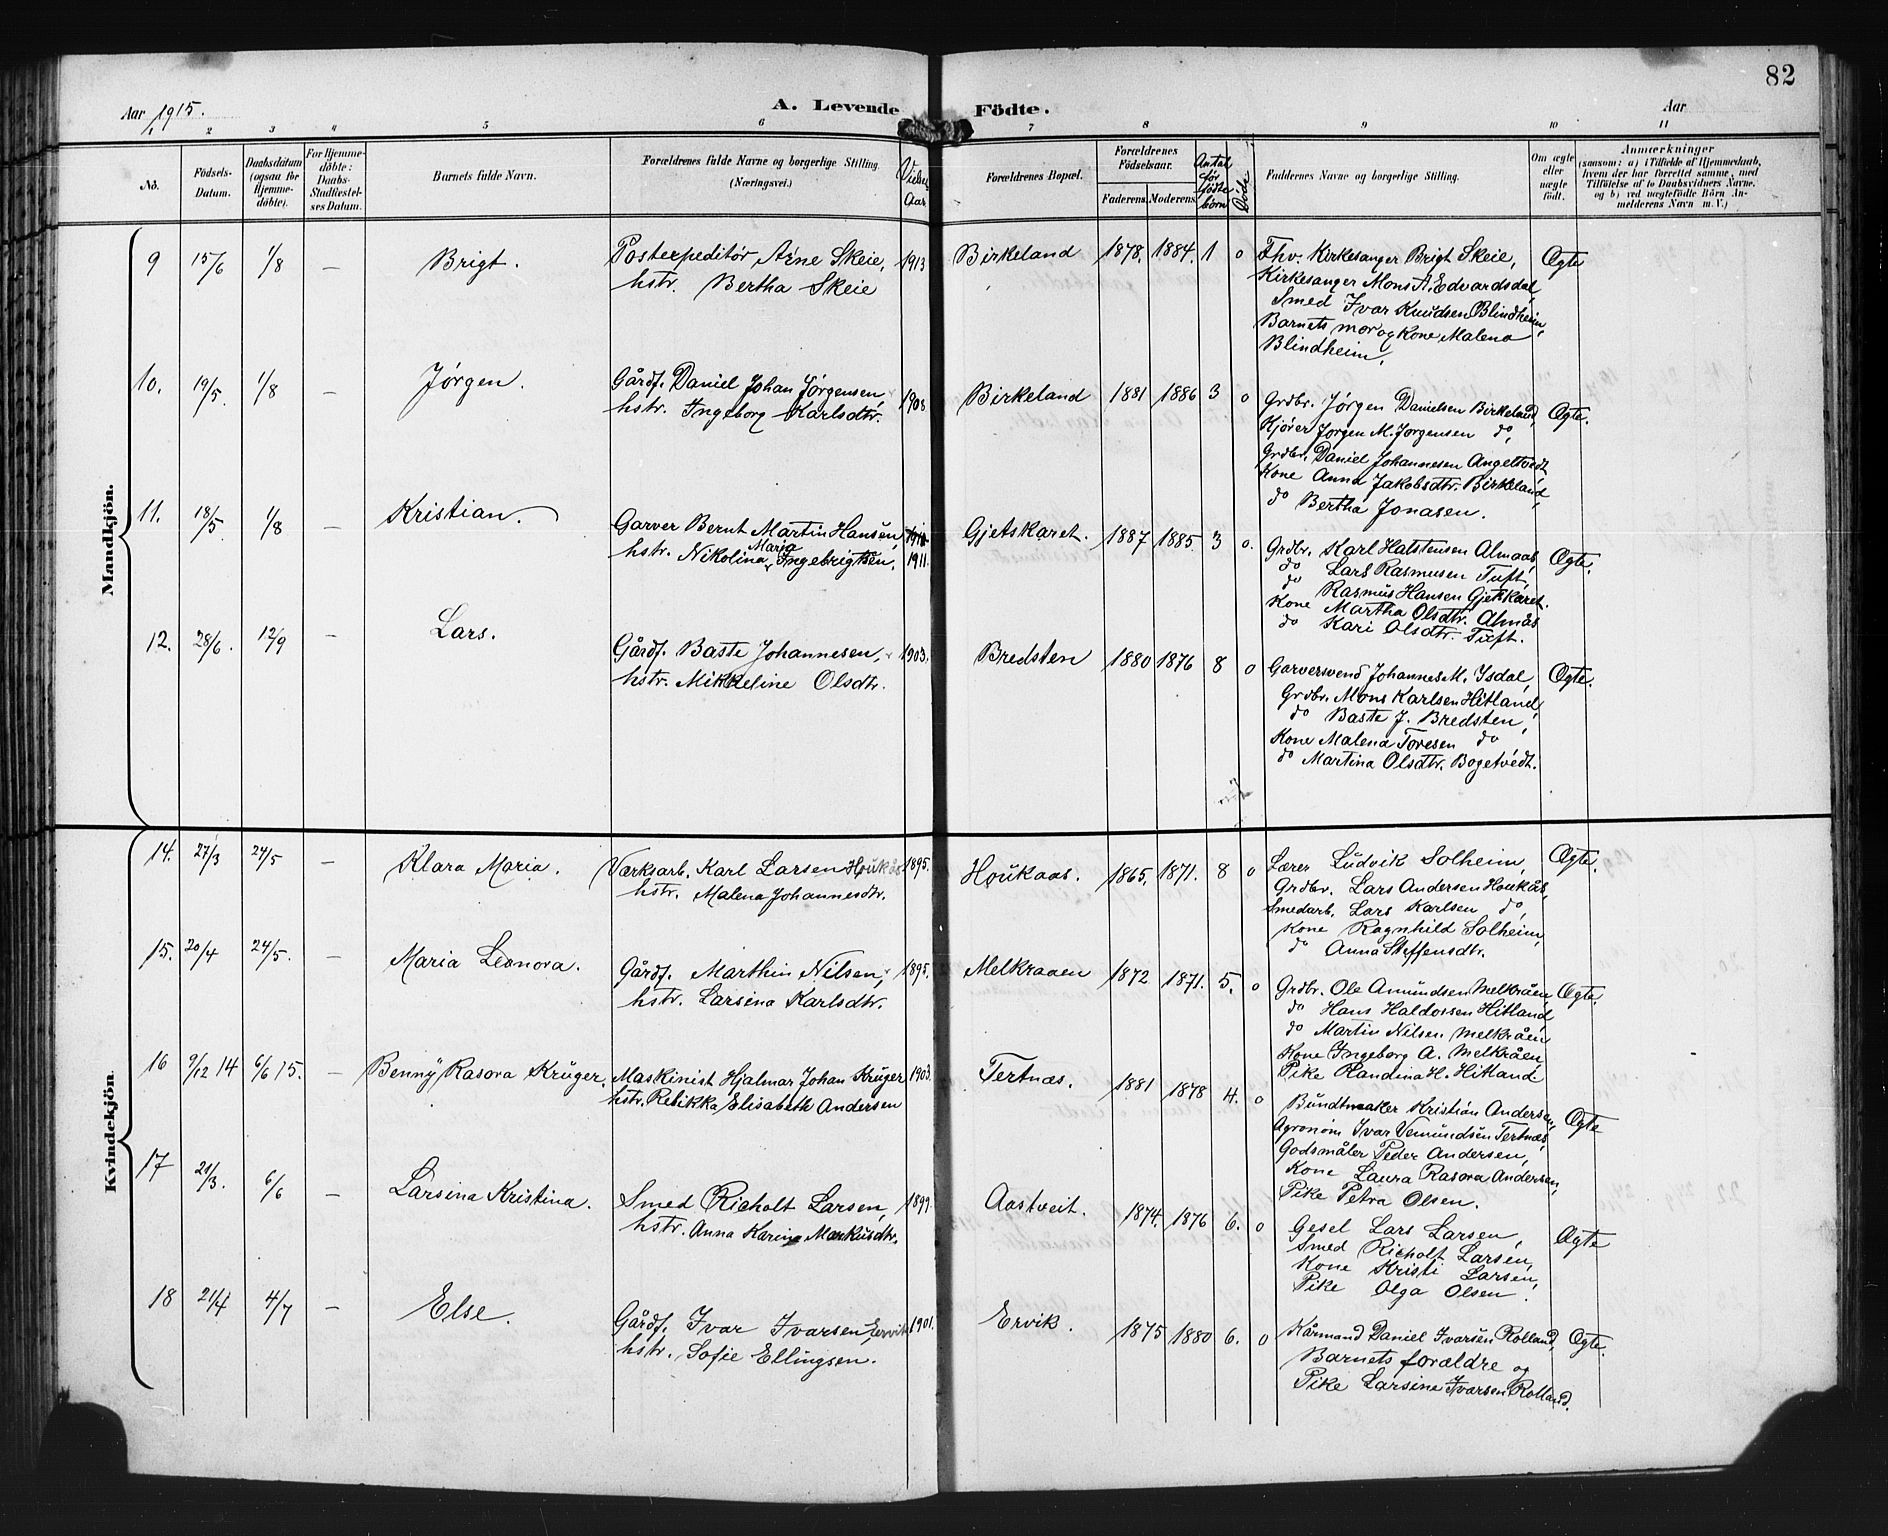 82
Aar 1915.
A. Levende Födte.
Aar
1 2 3 4 5 6 7 8 9 10 11
No.
Födsels-Datum.
Daabsdatum (ogsaa for Hjemme-döbte).
For Hjemme-döbte: Daabs-Stadfæstelses Datum.
Barnets fulde Navn.
Forældrenes fulde Navne og borgerlige Stilling.
(Næringsvei.)
Vielses Aar
Forældrenes Bopæl.
Forældrenes Födselsaar.
Faderens. Moderens.
Antal før fødte børn
Døde
Faddernes Navne og borgerlige Stilling.
Om ægte eller uægte födt.
Anmærkninger
(saasom: a) i Tilfælde af Hjemmedaab,
hvem der har forrettet samme, med
Tilföielse af to Daabsvidners Navne,
og b) ved uægtefödte Börn An-
melderens Navn m. V.)
Mandkjön.
9 15/6 1/8 — Brigt. Postexpeditør Arne Skeie, 1913 Birkeland 1878. 1884. 1 0 Fhv. Kirkesanger Brigt Skeie, Ægte
hstr. Bertha Skeie Kirkesanger Mons A. Edvardsdal,
Smed Ivar Knudsen Blindheim,
Barnets mor og Kone Malena
Blindheim.
10. 19/5. 1/8 — Jørgen. Gårdf. Daniel Johan Jørgensen, 1908 Birkeland 1881 1886 3 0 Grdbr. Jørgen Danielsen Birkeland, Ægte.
hstr. Ingeborg Karlsdtr. Kjører Jørgen M. Jørgensen do,
Grdbr. Daniel Johannesen Angeltvedt
Kone Anna Jakobsdtr. Birkeland,
do Bertha Jonasen.
11. 18/5. 1/8 — Kristian. Garver Bernt Martin Hansen, Gjetskaret. 1887 1885. 3 0. Grdbr. Karl Halstensen Almaas, Ægte.
hstr. Nikolina Maria Ingebrigtsen. 1911. do Lars Rasmusen Tuft,
do Rasmus Hansen Gjetskaret.
Kone Martha Olsdtr. Almås
do Kari Olsdtr. Tuft.
12. 28/6. 12/9 — Lars. Gårdf. Baste Johannesen, 1903. Bredsten 1880 1876 8 0 Garversvend Johannes M. Isdal, Ægte.
hstr. Mikkeline Olsdtr. Grdbr. Mons Karlsen Hitland,
do Baste J. Bredsten,
Kone Malena Toresen do
do Martina Olsdtr. Bogetvedt.
Kvindekjön.
14. 27/3 24/5 — Klara Maria. Værksarb. Karl Larsen Houkås 1895. Houkaas. 1865. 1871. 8 0 Lærer Ludvik Solheim, Ægte.
hstr. Malena Johannesdtr. Grdbr. Lars Andersen Houkås,
Smedarb. Lars Karlsen do,
Kone Ragnhild Solheim,
do Anna Steffensdtr.
15. 20/4 24/5. — Maria Leonora. Gårdf. Marthin Nilsen, 1895. Melkraaen 1872 1871. 5. 0 Grdbr. Ole Amundsen Melkråen, Ægte.
hstr. Larsina Karlsdtr. do Hans Haldorsen Hitland,
do Martin Nilsen Melkråen
Kone Ingeborg A. Melkråen,
Pike Randina H. Hitland
16 9/12 14 6/6 15. — Benny Rasora Krüger. Maskinist Hjalmar Johan Krüger 1903. Tertnæs. 1881 1878 4. 0 Bundtmaker Kristian Andersen, Ægte
hstr. Rebikka Elisabeth Andersen Agronom Ivar Vemundsen Tertnæs,
Godsmåler Peder Andersen,
Kone Laura Rasora Andersen,
Pike Petra Olsen.
17 21/3. 6/6 — Larsina Kristina. Smed Richolt Larsen, 1899 Aastveit. 1874. 1876 6. 0 Gesel Lars Larsen, Ægte
hstr. Anna Karina Markusdtr. Smed Richolt Larsen,
Kone Kristi Larsen,
Pike Olga Olsen.
18 21/4 4/7 — Else. Gårdf. Ivar Ivarsen Eervik 1901. Ervik. 1875 1880 6. 0 Kårmand Daniel Ivarsen Rolland, Ægte.
hstr. Sofie Ellingsen. Barnets forældre og
Pike Larsina Ivarsen Rolland.